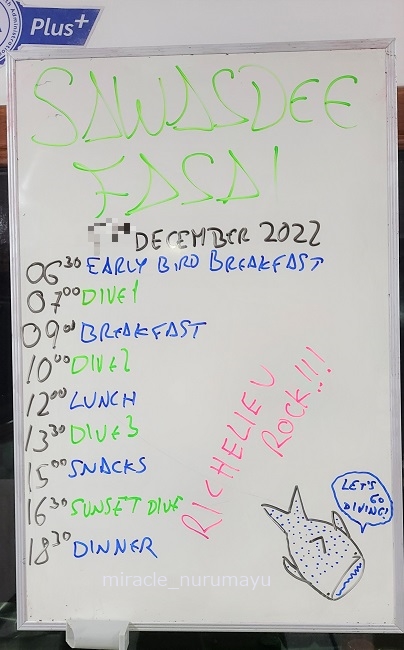 Plus+
SAWASDEE
FASAI
DECEMBER 2022
06³⁰ EARLY BIRD BREAKFAST
07⁰⁰ DIVE 1
09⁰⁰ BREAKFAST
10⁰⁰ DIVE 2
12⁰⁰ LUNCH
13³⁰ DIVE 3
15⁰⁰ SNACKS
16³⁰ SUNSET DIVE
18³⁰ DINNER
RICHELIEU
ROCK!!!
LET'S
GO
DIVING!
miracle_nurumayu